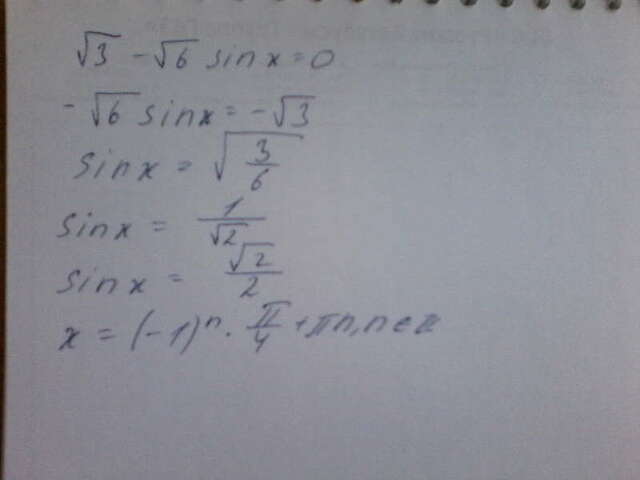 √3 - √6 sinx = 0
- √6 sinx = - √3
sinx = √(3/6)
sinx = 1/√2
sinx = √2/2
x = (-1)ⁿ · π/4 + πn, n ∈ Z